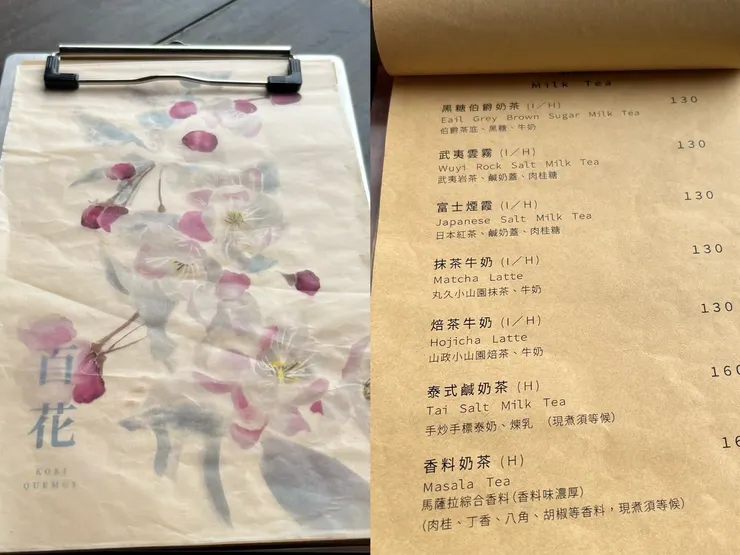 百花
KOBI
QUEMOS
Milk Tea
黑糖伯爵奶茶 (I/H) 130
Eail Grey Brown Sugar Milk Tea
伯爵茶底、黑糖、牛奶
武夷雲霧 (I/H) 130
Wuyi Rock Salt Milk Tea
武夷岩茶、鹹奶蓋、肉桂糖
富士煙霞 (I/H) 130
Japanese Salt Milk Tea
日本紅茶、鹹奶蓋、肉桂糖
抹茶牛奶 (I/H) 130
Matcha Latte
丸久小山園抹茶、牛奶
焙茶牛奶 (I/H) 130
Hojicha Latte
山政小山園焙茶、牛奶
泰式鹹奶茶 (H) 160
Tai Salt Milk Tea
手炒手標泰奶、煉乳 (現煮須等候)
香料奶茶 (H)
Masala Tea
馬薩拉綜合香料(香料味濃厚)
(肉桂、丁香、八角、胡椒等香料,現煮須等候)